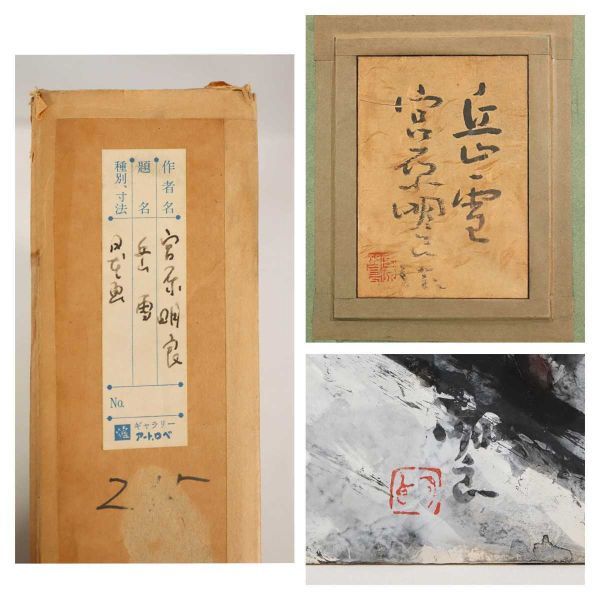 作者名 宮原明良
題名 岳雪
種別、寸法 日本画
No.
ギャラリー
アート、ロベ
岳雪
宮原明良
明良